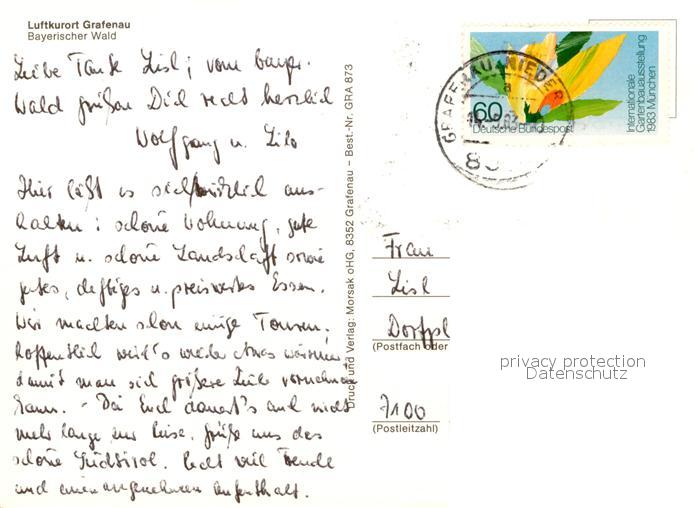 Luftkurort Grafenau
Bayerischer Wald
Liebe Tante Lisl; vom bayr.
Wald grüßen Dich recht herzlich
Wolfgang u. Lilo
Hier läßt es sich wirklich aus-
halten: schöne Wohnung, gute
Luft u. schöne Landschaft sowie
gutes, deftiges u. preiswertes Essen.
Wir machten schon einige Touren.
Hoffentlich wird's wieder etwas wärmer
damit man sich größere Ziele vornehmen
kann. - Bei Euch dauert's auch nicht
mehr lange zur Reise. Grüße uns das
schöne Südtirol. Recht viel Freude
und einen angenehmen Aufenthalt.
Druck und Verlag: Morsak oHG, 8352 Grafenau – Best.-Nr. GRA 873
GRAFENAU, NIEDER
a
83
60
Deutsche Bundespost
Internationale
Gartenbauausstellung
1983 München
Frau
Lisl
Dorfpl
(Postfach oder
7100
(Postleitzahl)
privacy protection
Datenschutz